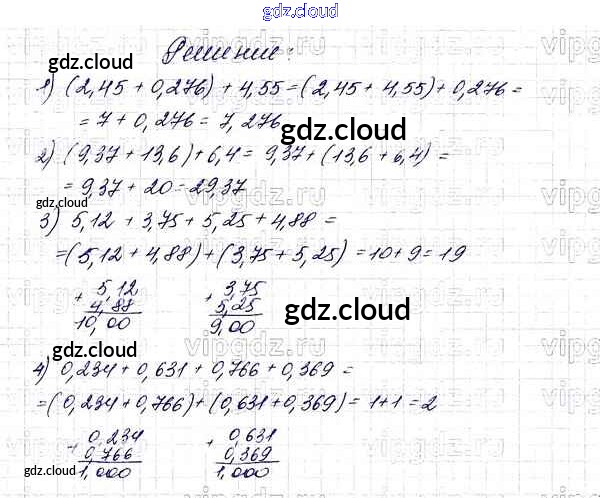 gdz.cloud
Решение:
1) (2,45 + 0,276) + 4,55 = (2,45 + 4,55) + 0,276 =
= 7 + 0,276 = 7,276
2) (9,37 + 13,6) + 6,4 = 9,37 + (13,6 + 6,4) =
= 9,37 + 20 = 29,37
3) 5,12 + 3,75 + 5,25 + 4,88 =
= (5,12 + 4,88) + (3,75 + 5,25) = 10 + 9 = 19
+ 5,12 + 3,75
4,88 5,25
10,00 9,00
4) 0,234 + 0,631 + 0,766 + 0,369 =
= (0,234 + 0,766) + (0,631 + 0,369) = 1 + 1 = 2
+ 0,234 + 0,631
0,766 0,369
1,000 1,000
gdz.cloud
gdz.cloud
gdz.cloud
gdz.cloud
gdz.cloud
gdz.cloud
gdz.cloud
vipgdz.ru